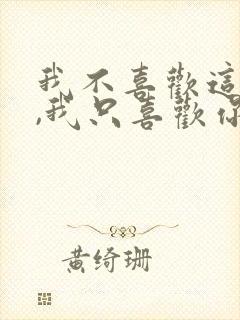 我不喜歡這
,我只喜歡你
黄绮珊